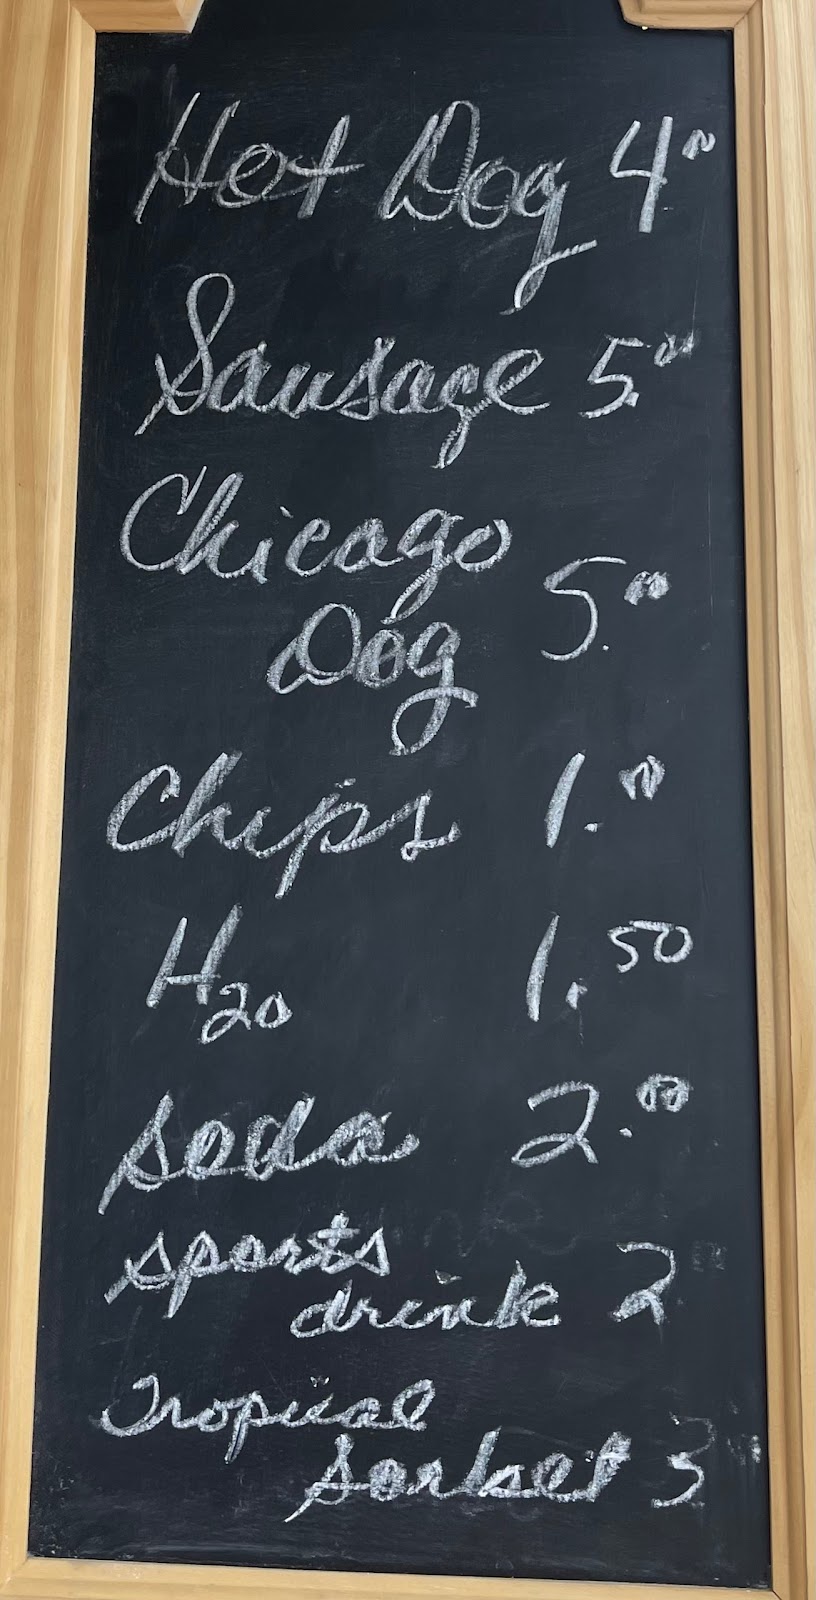 Hot Dog 4.00
Sausage 5.00
Chicago
Dog 5.00
Chips 1.00
H20 1.50
soda 2.00
sports
drink 2
Tropical
sorbet 3